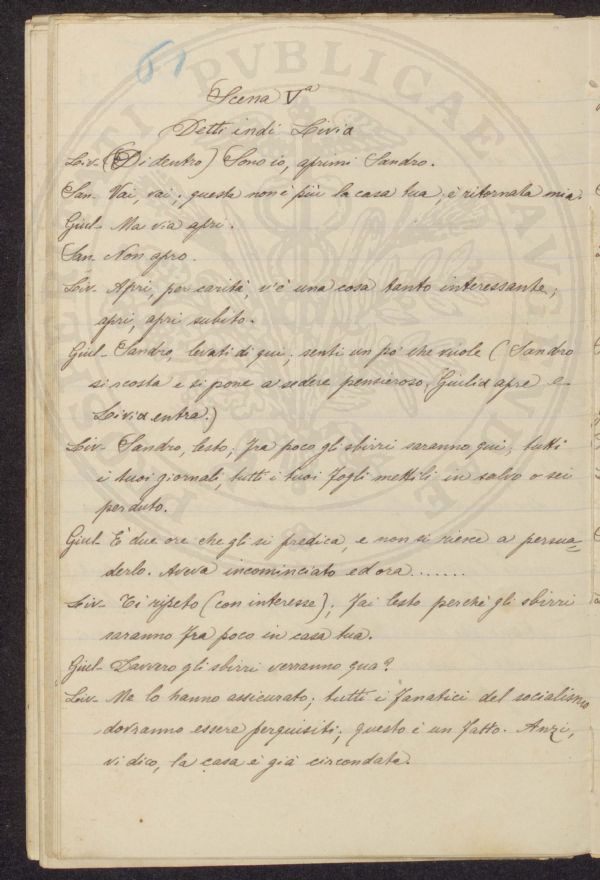 61
Scena Vª
Detti indi Livia
Liv- (Di dentro) Sono io, aprimi Sandro.
San- Vai, vai; questa non è più la casa tua, è ritornata mia.
Giul- Ma via apri.
San- Non apro.
Liv- Apri, per carità, v'è una cosa tanto interessante;
apri, apri subito.
Giul- Sandro, levati di qui, senti un po' che vuole (Sandro
si scosta e si pone a sedere pensieroso, Giulia apre e
Livia entra.)
Liv- Sandro, lesto; fra poco gli sbirri saranno qui, tutti
i tuoi giornali, tutti i tuoi fogli mettili in salvo o sei
perduto.
Giul- È due ore che gli si predica, e non si riesce a persua=
derlo. Aveva incominciato ed ora.......
Liv- Ti ripeto (con interesse); fai lesto perchè gli sbirri
saranno fra poco in casa tua.
Giul- Davvero gli sbirri verranno qua?
Liv- Me lo hanno assicurato; tutti i fanatici del socialismo
dovranno essere perquisiti; questo è un fatto. Anzi,
vi dico, la casa è già circondata.